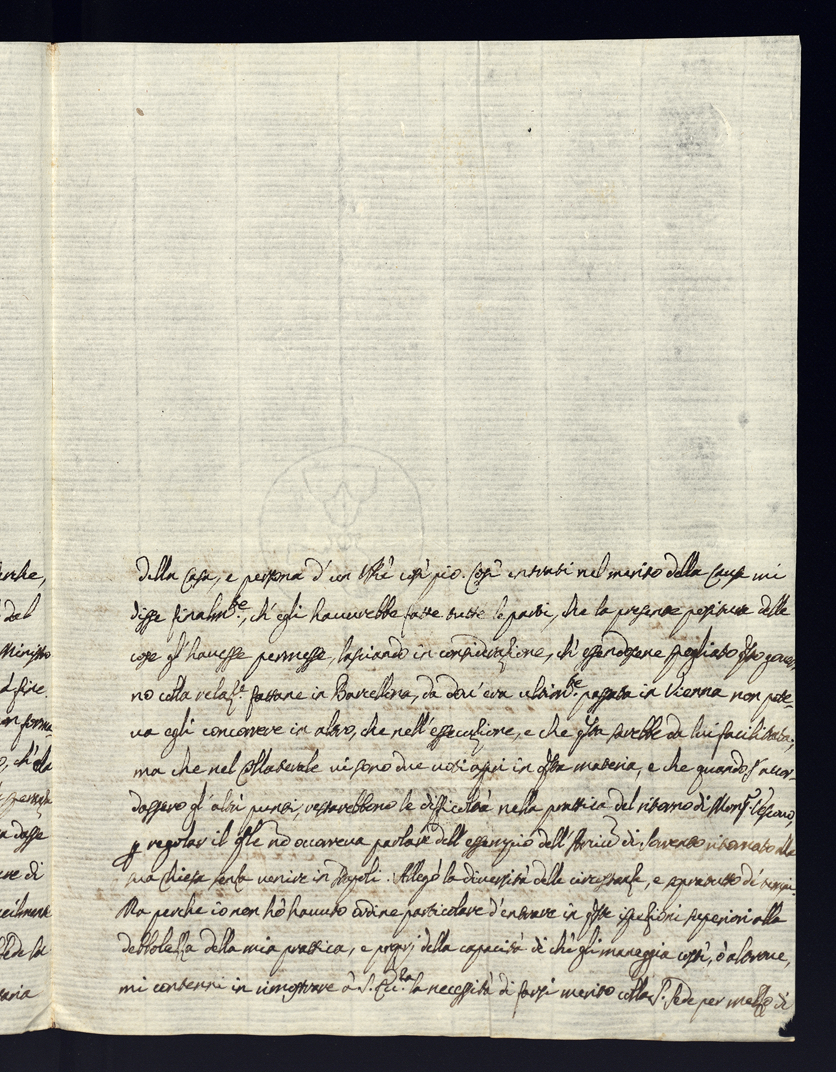 della Casa, e persona d'un Rè così pio. Così entrati nel merito della Causa mi
disse finalm.te, ch'egli haverebbe fatte tutte le parti, che la presente positura delle
cose gl'havesse permesse, lasciando in considerazione, ch'essendosene spogliato questo gover-
no colla relaz.e fattane in Barcellona, da dov'era ultim.te passata in Vienna non pote-
va egli concorrere in altro, che nell'essecuzione, e che questa sarebbe da lui facilitata,
ma che nel Collaterale vi sono due voti in questa materia, e che quando s'accor-
dassero gl'altri punti, restarebbono le difficoltà nella prattica del ritorno di Mons.r Vescovo,
p regolar il quale nò occorreva parlare dell'essempio dell' di Sorrento ritornato alla
sua Chiesa senza venire in Napoli. Allegò la diversità delle circostanze, e sopratutto di tempi.
Ma perche io non hò havuto ordine particolare d'entrare in queste superiori alla
debbolezza della mia prattica, e proprj della capacità di chi gli maneggia costì, ò altrove,
mi contenni in rimostrare à S. Ecc.za la necessità di farsi merito colla S. Sede per mezzo di
erche,
del
Ministro
fine.
forma
ch'ella
dasse
re di
Sede